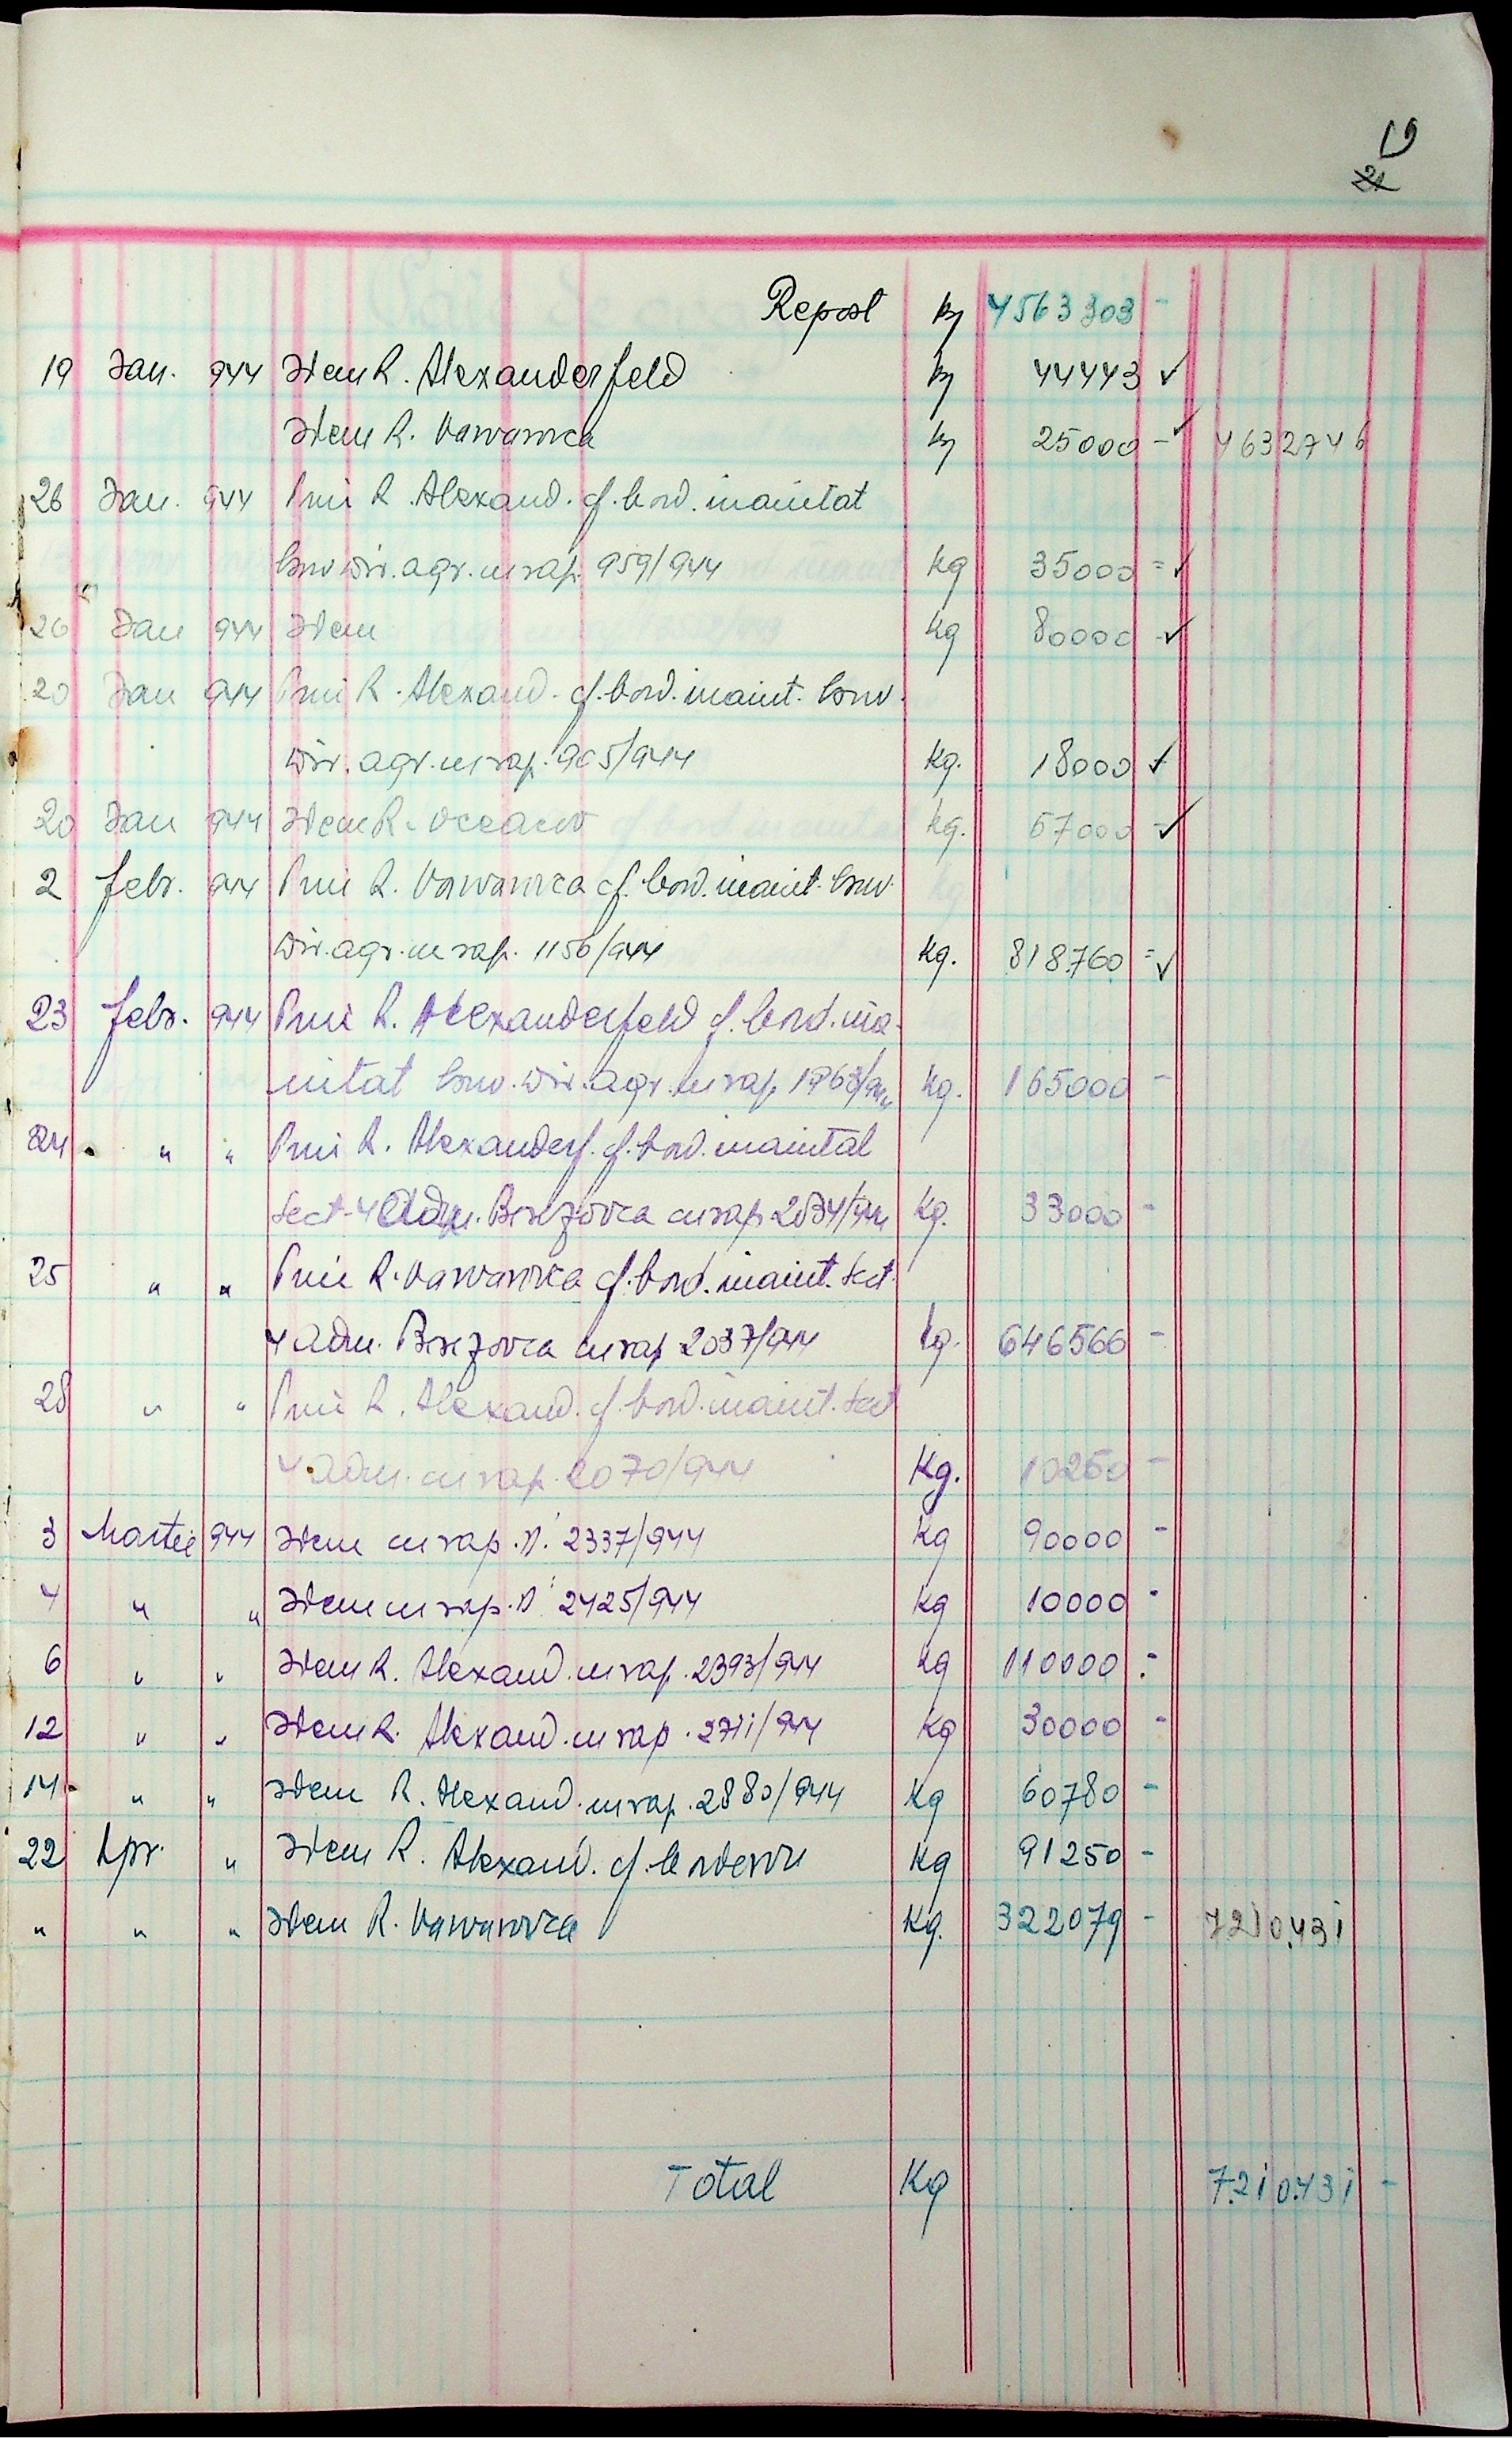 19
21
Report kg 4563303 -
19 Jan. 944 Idem R. Alexanderfeld kg 44443 ✓
Idem R. Varvarovca kg 25000 - ✓ 4632746
26 Jan. 944 Prin R. Alexand. cf. bord. inaintat
Conv. dir. agr. cu rap. 959/944 kg 35000 = ✓
26 Jan 944 Idem kg 80000 - ✓
20 Jan 944 Prin R. Alexand. cf. bord. inaint. Conv.
dir. agr. cu rap. 905/944 kg. 18000 ✓
20 Jan 944 Idem R. kg. 57000 = ✓
2 febr. 944 Prin R. Varvarovca cf. bord. inaint. Conv.
dir. agr. cu rap. 1156/944 kg. 818760 = ✓
23 febr. 944 Prin R. Alexanderfeld cf. bord. ina-
intat Conv. dir. agr. cu rap. 1963/944 kg. 165000 -
24 " " Prin R. Alexanderf. cf. bord. inaintat
Sect. 4 Adm. Berezovca cu rap 2034/944 kg. 33000 -
25 " " Prin R. Varvarovca cf. bord. inaint. Sect.
4 Adm. Berezovca cu rap 2037/944 kg. 646566 -
28 " " Prin R. Alexand. cf. bord. inaint. Sect
4 Adm. cu rap. 2070/944 Kg. 10250 -
3 Martie 944 Idem cu rap. N. 2337/944 Kg 90000 -
4 " " Idem cu rap. N 2425/944 kg 10000 -
6 " " Idem R. Alexand. cu rap. 2393/944 kg 110000 -
12 " " Idem R. Alexand. cu rap. 2711/944 kg 30000 -
14 " " Idem R. Alexand. cu rap. 2880/944 Kg 60780 -
22 Apr. " Idem R. Alexand. cf. borderou Kg 91250 -
" " " Idem R. Varvarovca Kg. 322079 - 7210.431
Total Kg 7.210.431 -